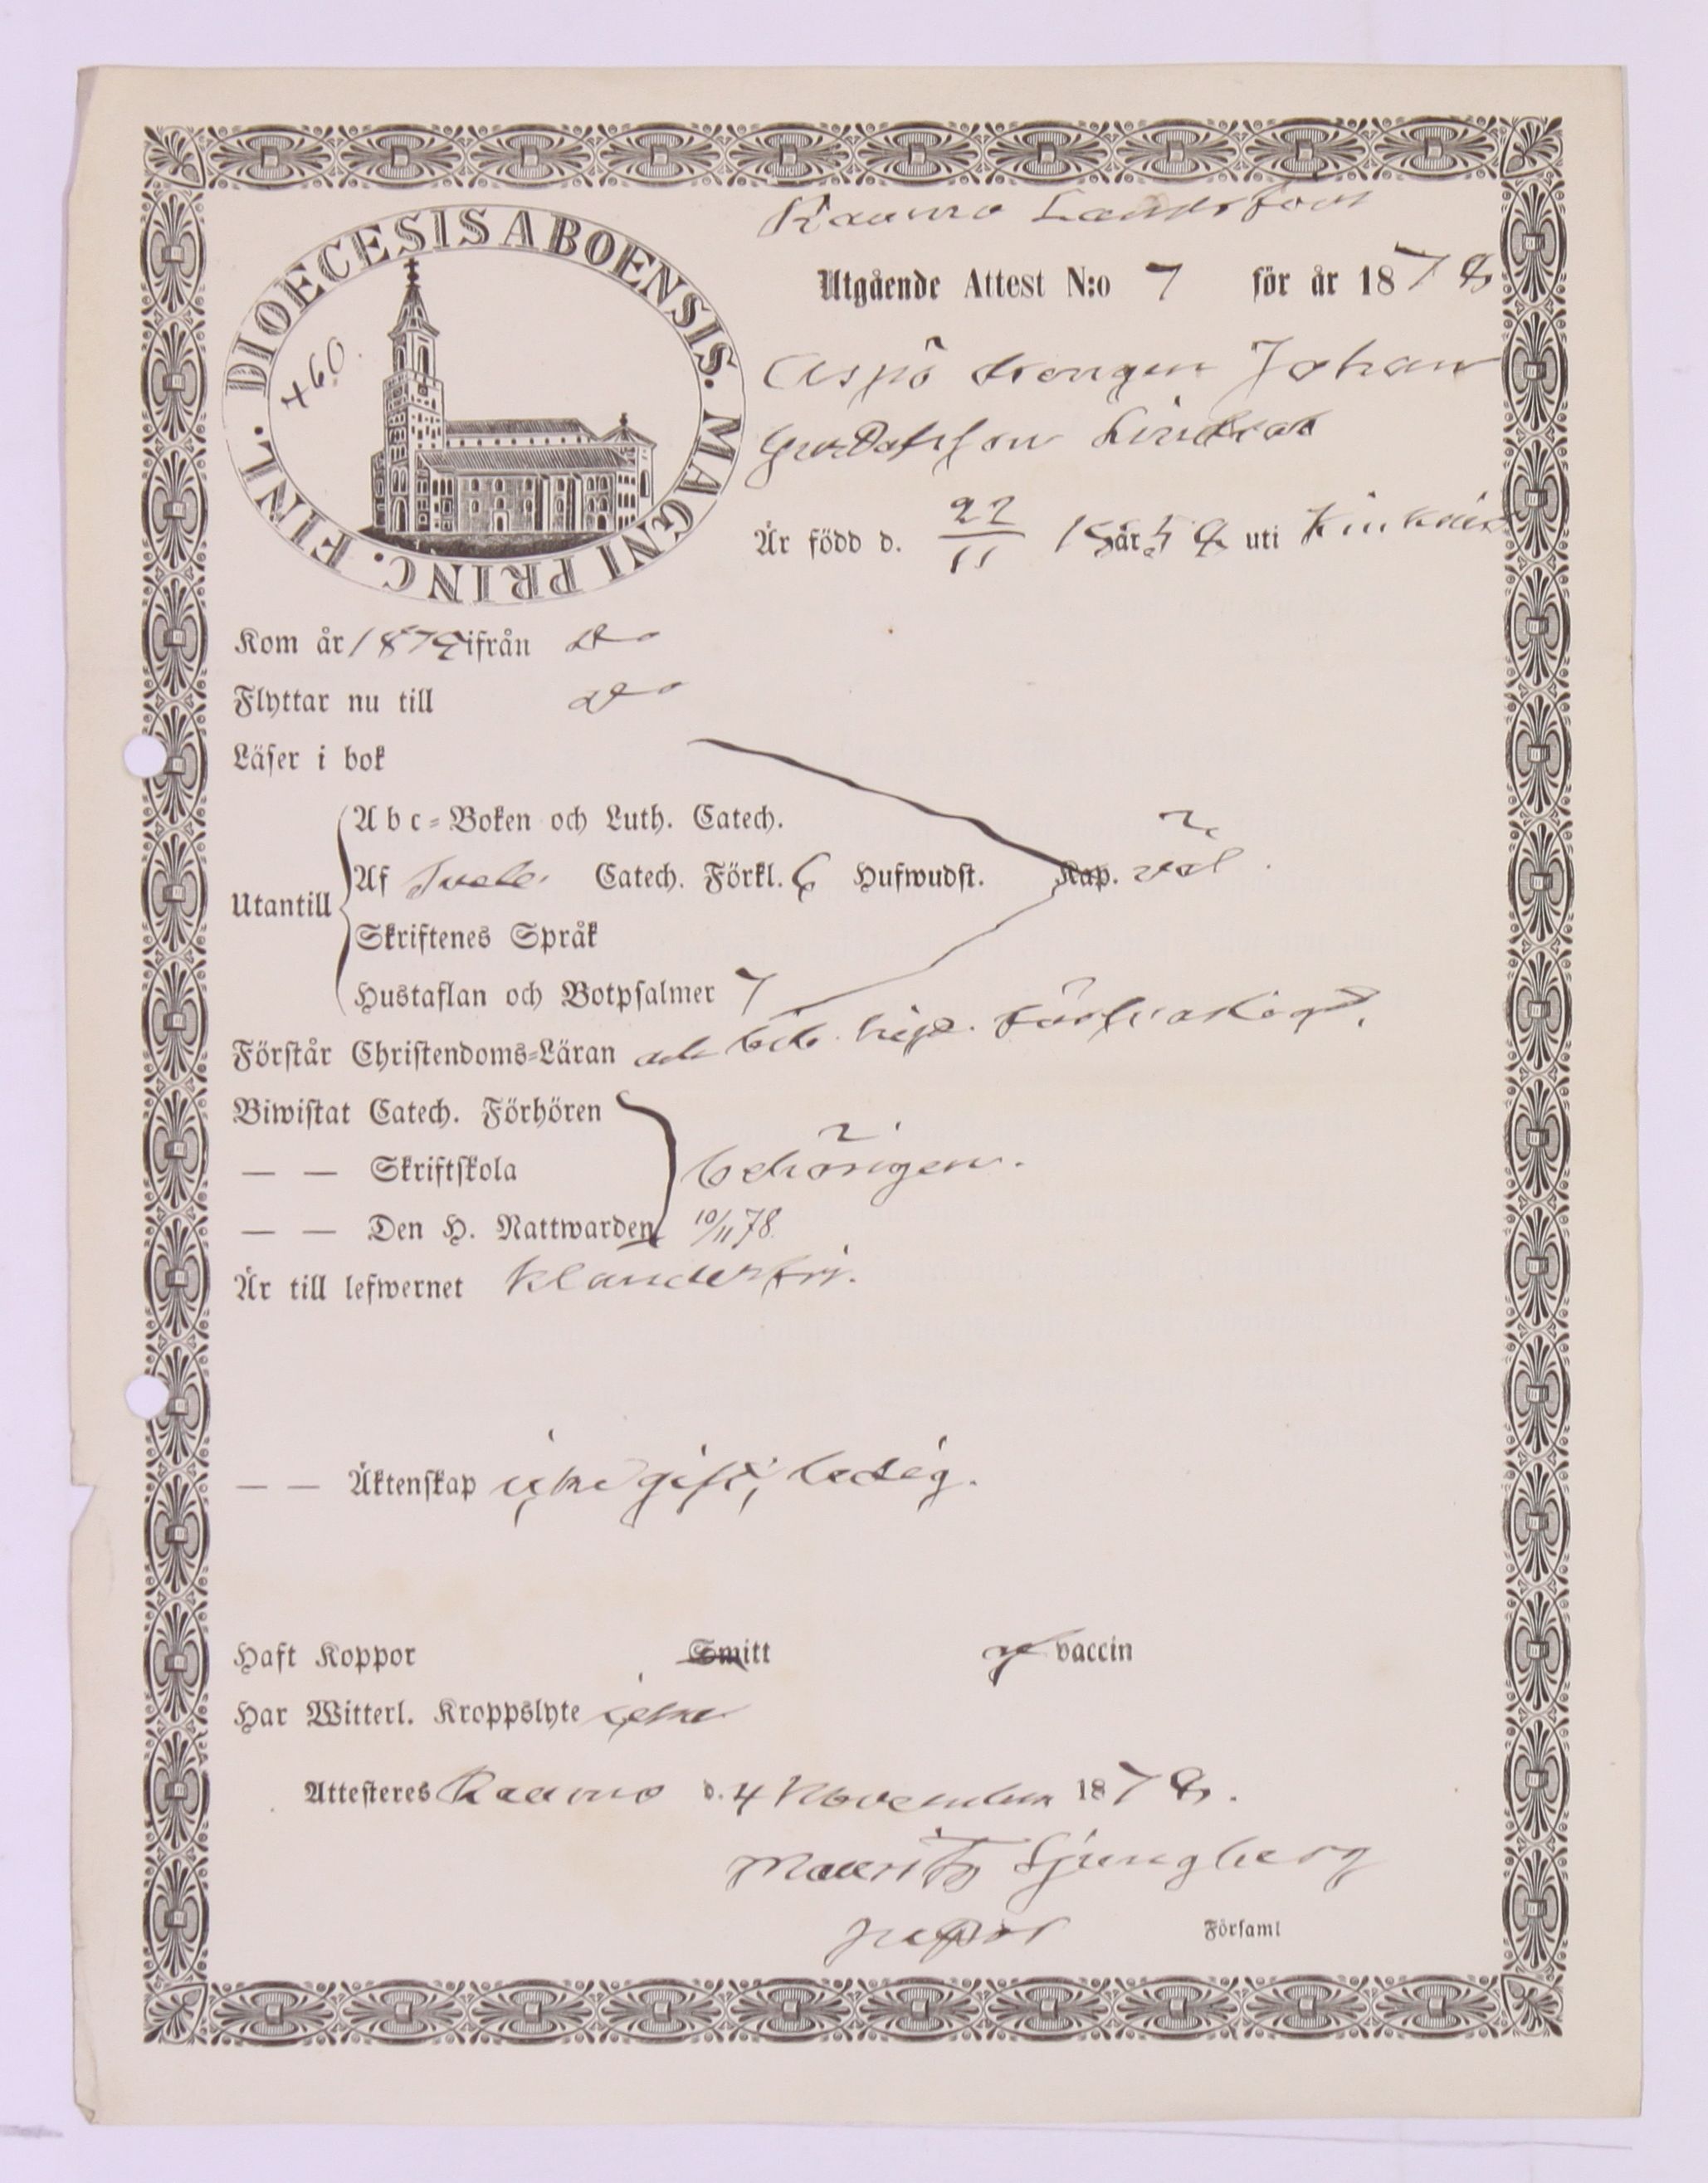 DIOECESIS ABOENSIS. MAGNI PRINC. FINL.
460.
Raumo Landsförs
Utgående Attest N:o 7 för år 1878
Aspö drengen Johan
Gustafsson Lindroos
Är född d. 22/11 1858 uti Kinkais
Kom år 1874 ifrån Do
Flyttar nu till Do
Läser i bok
Utantill
Abc-Boken och Luth. Catech.
Af Svebe. Catech. Förkl. 6 Hufwudst. Kap. väl.
Skriftenes Språk
Hustaflan och Botpsalmer 7
Förstår Christendoms-Läran försvarligt.
Biwistat Catech. Förhören
— — Skriftskola behörigen.
— — Den H. Nattwarden 10/11 78.
Är till lefwernet klanderfri.
— — Äktenskap icke gift, ledig.
Haft Koppor Smitt vaccin
Har Witterl. Kroppslyte icke
Attesteres Raumo d. 4 November 1878.
Mauritz Ljungberg
Församl